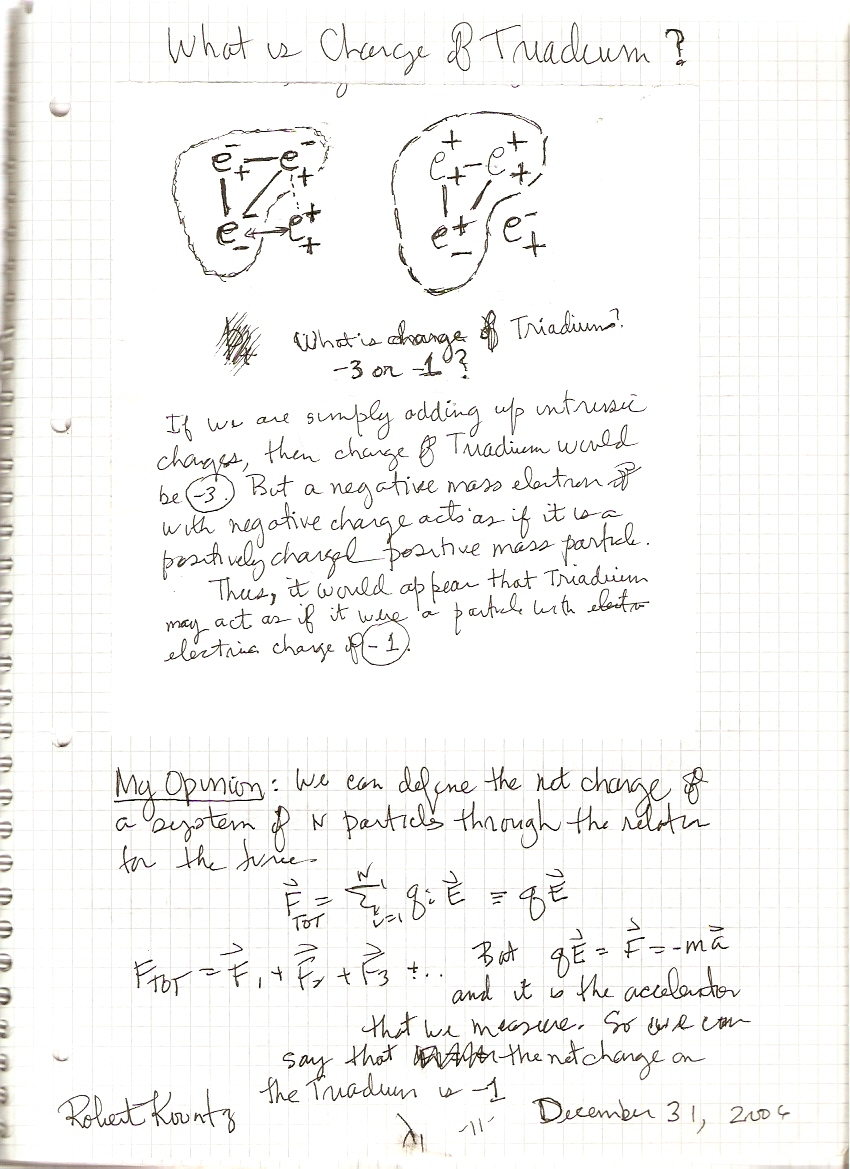 What is Charge of Triadium?
e⁻₊ — e⁻₊
e₋ ↔ e⁺₊
e⁺₊ – e⁺₊
e⁺₋ e⁻₊
What is charge of Triadium?
-3 or -1?
If we are simply adding up intrinsic
charges, then charge of Triadium would
be -3. But a negative mass electron
with negative charge acts as if it is a
positively charged positive mass particle.
Thus, it would appear that Triadium
may act as if it were a particle with
electric charge of -1.
My Opinion: We can define the net charge of
a system of N particles through the relation
for the force.
F⃗TOT = Σᴺᵢ₌₁ qᵢ E⃗ ≡ qE⃗
FTOT = F⃗₁ + F⃗₂ + F⃗₃ + ..
But qE⃗ = F⃗ = -ma⃗
and it is the acceleration
that we measure. So we can
say that the net charge on
the Triadium is -1
Robert Kountz
-11-
December 31,